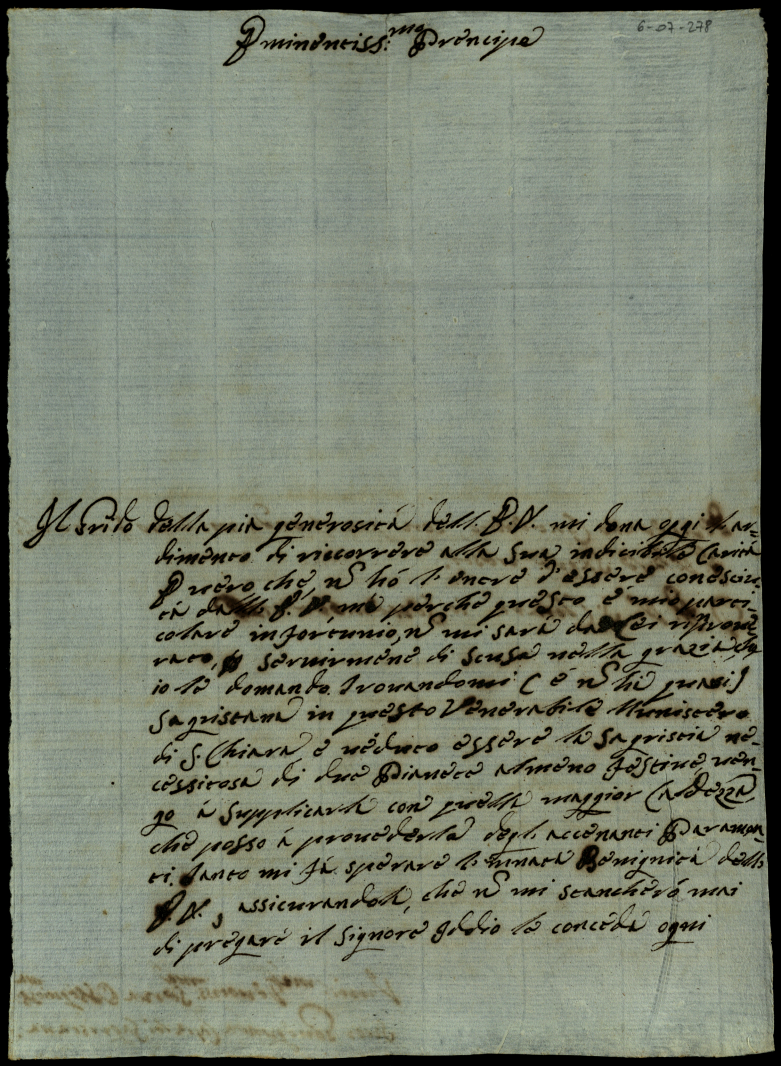 6-07-278
Eminentiss:mo Prencipe
Il Grido della pia generosità dell' E.V. mi dona oggi l'ar=
dimento di riccorrere alla Sua indicibile Carità
È vero che, nõ hó l'onore d'essere conosciu-
ta dall' E.V. mà perche questo è mio parti-
colare infortunio, nõ mi sarà da Lei riprove
rato, servirmene di scusa nella grazia, ch'
io le domando. Trovandomi (e nõ hà guari)
Sagristana in questo Venerabile Munistero
di S. Chiara e veduto essere la Sagristia ne-
cessitosa di due Pianete almeno festive, ven-
go à Supplicarla con quella maggior Caldezza,
che posso à provederla degl' accenati Paramen-
ti. Tanto mi fà sperare l'innata Benignità dell'
E.V., assicurandola, che nõ mi stancherò mai
di pregare il Signore Iddio le conceda ogni